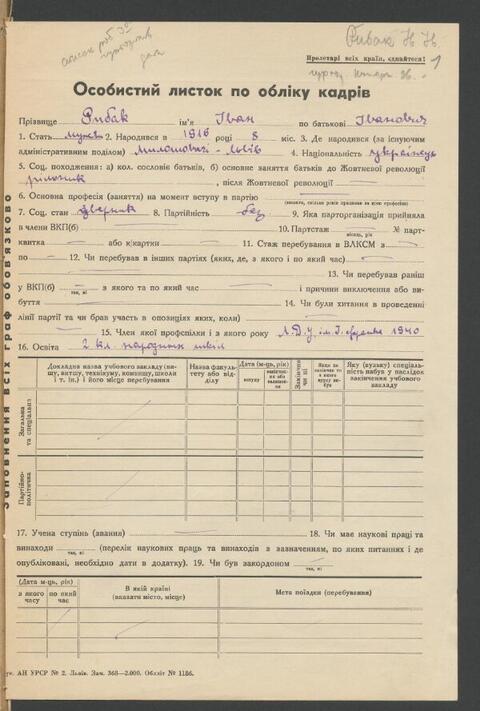 Рибак Н Н
список роб
Пролетарі всіх країн, єднайтеся!
Особистий листок по обліку кадрів
Прізвище Рибак ім'я Іван по батькові Іванович
1. Стать муж. 2. Народився в 1916 році 8 міс. 3. Де народився (за існуючим
адміністративним поділом) Милошовичі - Львів 4. Національність українець
5. Соц. походження: а) кол. сословіє батьків, б) основне заняття батьків до Жовтневої революції
рільник, після Жовтневої революції
6. Основна професія (заняття) на момент вступу в партію
(вказати, скільки років працював за цією професією)
7. Соц. стан двірник 8. Партійність без 9. Яка парторганізація прийняла
в члени ВКП(б) 10. Партстаж № парт-
місяць, рік
квитка або к/картки 11. Стаж перебування в ВЛКСМ з
по 12. Чи перебував в інших партіях (яких, де, з якого і по який час)
13. Чи перебував раніш
у ВКП(б) з якого та по який час і причини виключення або ви-
так, ні
буття 14. Чи були хитання в проведенні
лінії партії та чи брав участь в опозиціях яких, коли)
15. Член якої профспілки і з якого року Л.Д.У. ім. І. Франка 1940
16. Освіта 2 кл. народних шкіл
Заповнення всіх граф обов'язково
Докладна назва учбового закладу (ви-
шу, втишу, технікуму, комвишу, школи
і т. ін.) і його місце перебування
Назва факуль-
тету або від-
ділу
Дата (м-ць, рік)
вступу
закінчен-
ня або
залишен-
ня
Закінчив
чи ні
Якщо не
закінчив то
з якого
курсу ви-
був
Яку (вузьку) спеціаль-
ність набув у наслідок
закінчення учбового
закладу
Загальна
та спеціальна
Партійно-
політична
17. Учена ступінь (звання) 18. Чи має наукові праці та
винаходи (перелік наукових праць та винаходів з зазначенням, по яких питаннях і де
так, ні
опубліковані, необхідно дати в додатку). 19. Чи був закордоном
так, ні
(Дата м-ць, рік)
з якого
часу
по який
час
В якій країні
(вказати місто, місце)
Мета поїздки (перебування)
АН УРСР № 2. Львів. Зам. 368—2.000. Обліт № 1186.